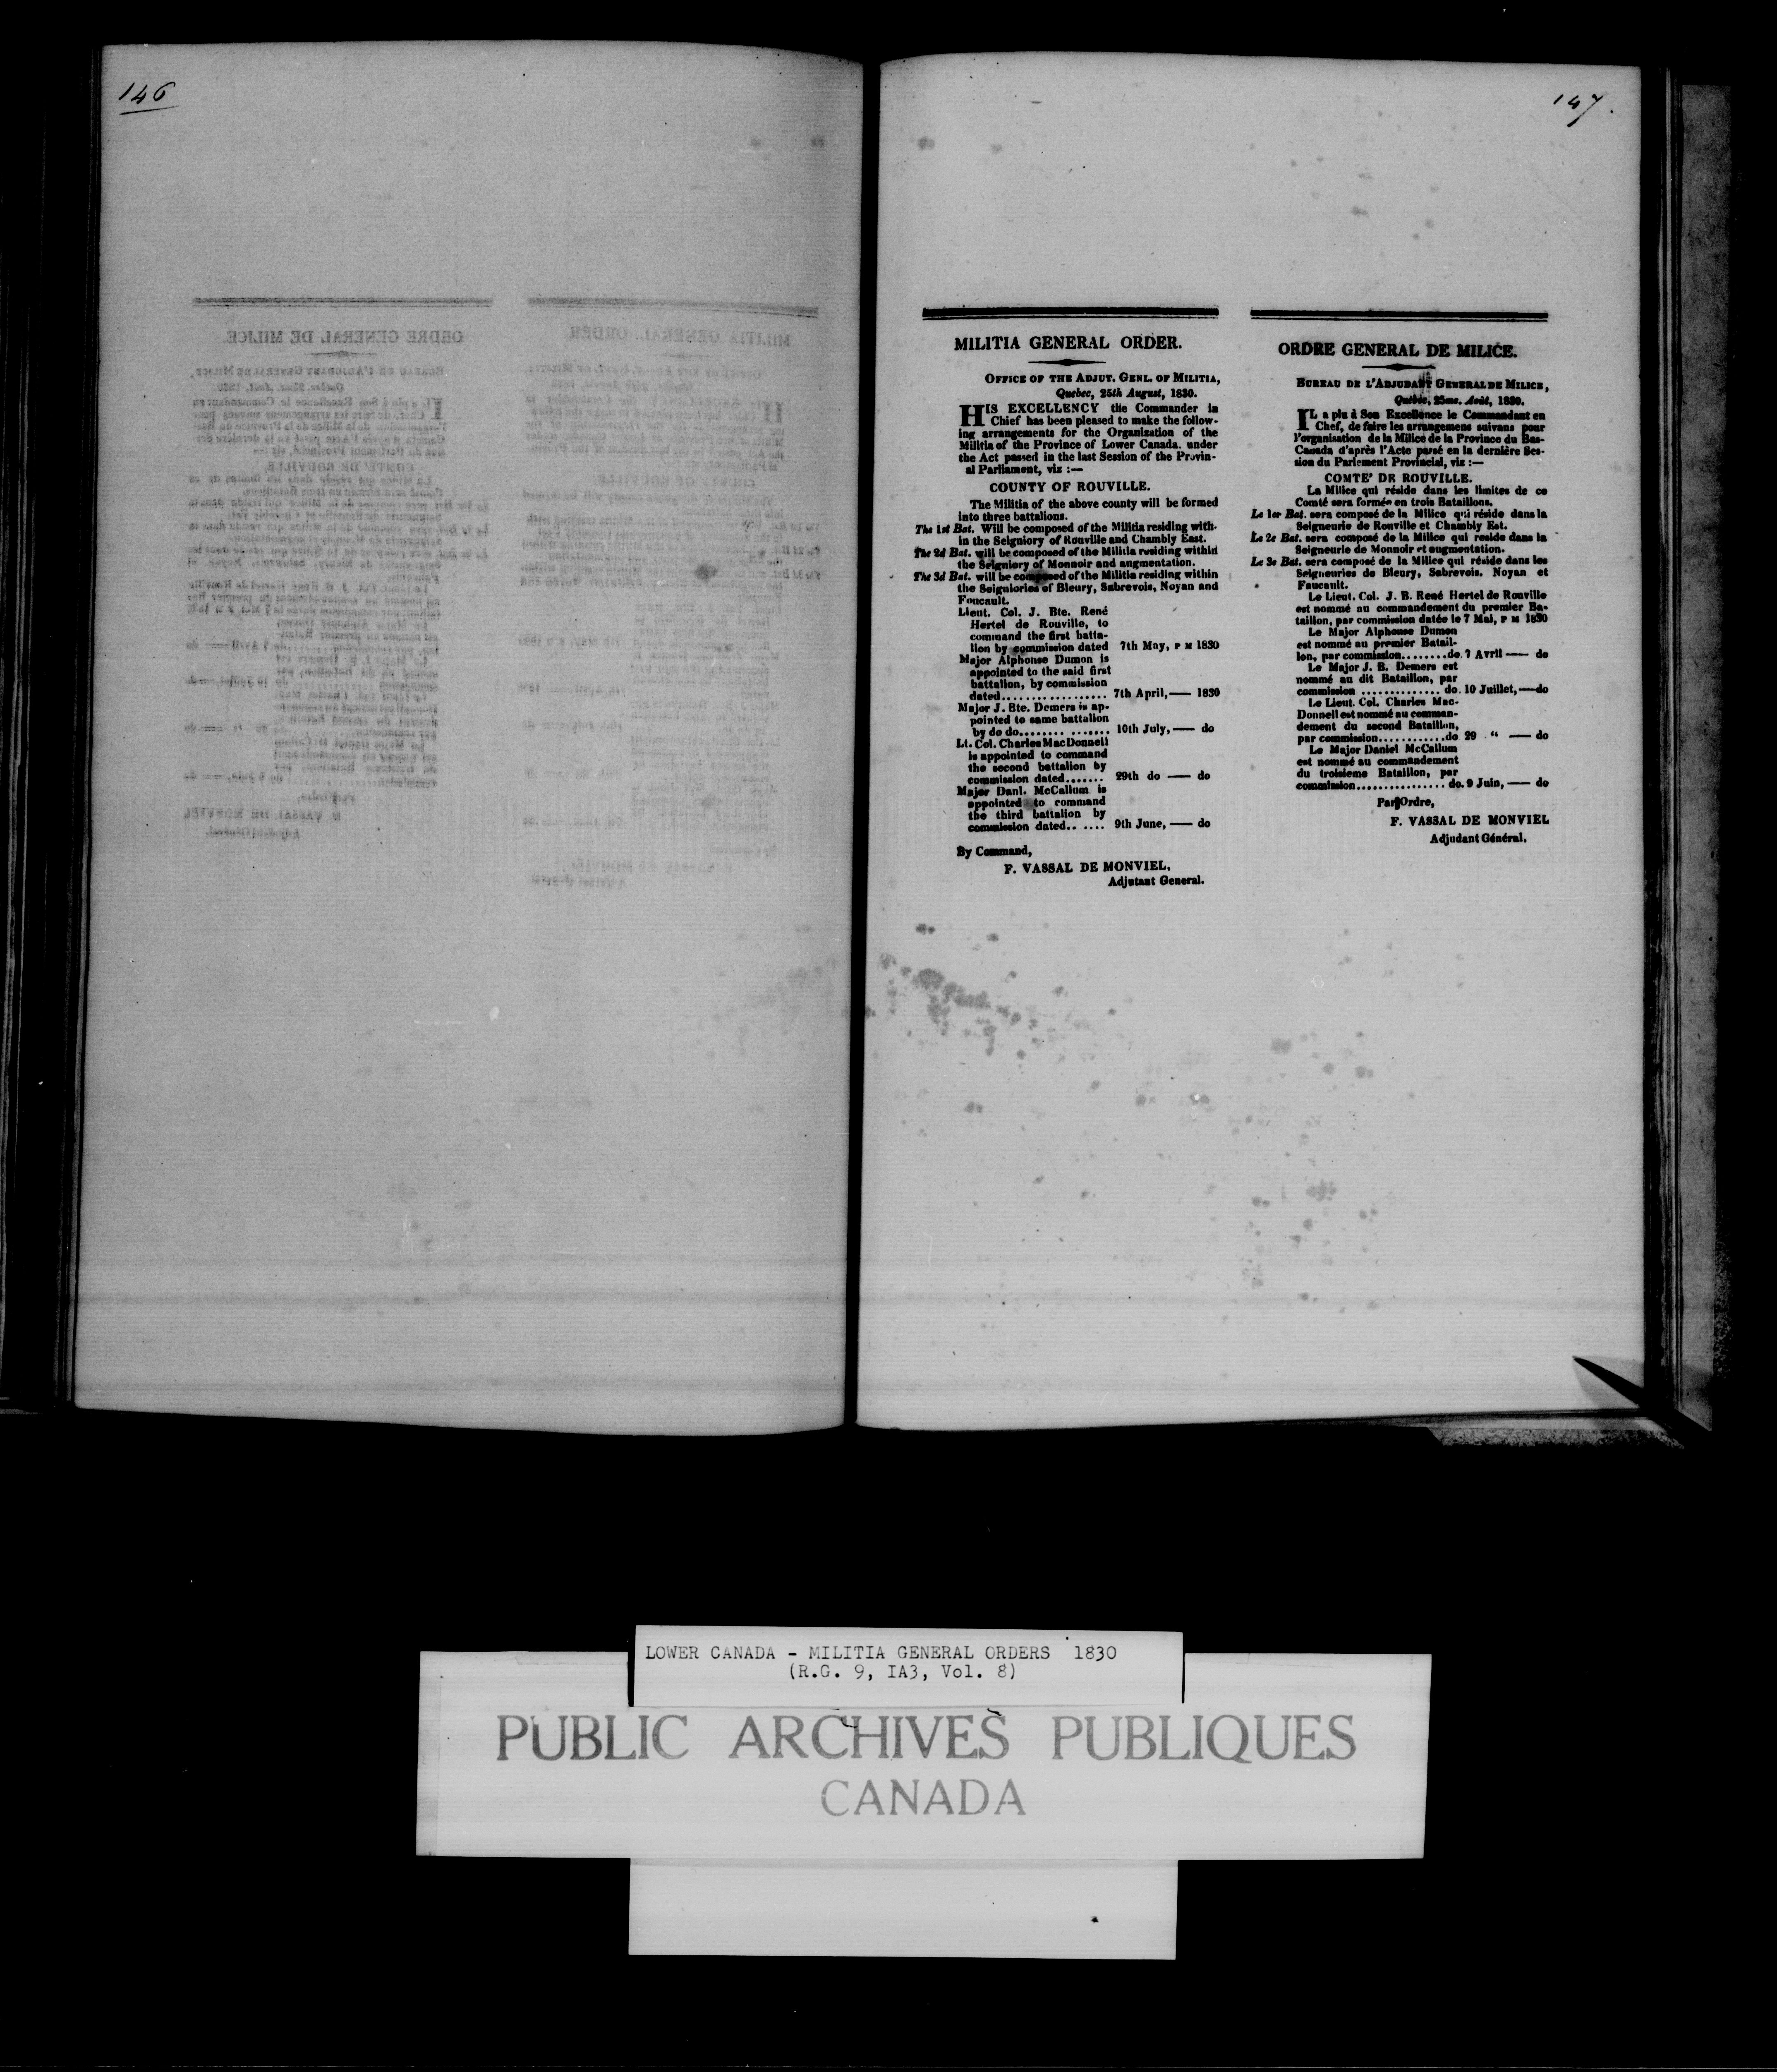 146
147.
MILITIA GENERAL ORDER.
OFFICE OF THE ADJUT. GENL. OF MILITIA,
Quebec, 25th August, 1830.
HIS EXCELLENCY the Commander in
Chief has been pleased to make the follow-
ing arrangements for the Organization of the
Militia of the Province of Lower Canada. under
the Act passed in the last Session of the Provin-
al Parliament, viz :—
COUNTY OF ROUVILLE.
The Militia of the above county will be formed
into three battalions.
The 1st Bat. Will be composed of the Militia residing with-
in the Seigniory of Rouville and Chambly East.
The 2d Bat. will be composed of the Militia residing within
the Seigniory of Monnoir and augmentation.
The 3d Bat. will be composed of the Militia residing within
the Seigniories of Bleury, Sabrevois, Noyan and
Foucault.
Lieut. Col. J. Bte. René
Hertel de Rouville, to
command the first batta-
lion by commission dated 7th May, P M 1830
Major Alphonse Dumon is
appointed to the said first
battalion, by commission
dated.................. 7th April,— 1830
Major J. Bte. Demers is ap-
pointed to same battalion
by do do........ ....... 10th July, — do
Lt. Col. Charles MacDonnell
is appointed to command
the second battalion by
commission dated....... 29th do — do
Major Danl. McCallum is
appointed to command
the third battalion by
commission dated.. .... 9th June, — do
By Command,
F. VASSAL DE MONVIEL,
Adjutant General.
ORDRE GENERAL DE MILICE.
BUREAU DE L'ADJUDANT GENERAL DE MILICE,
Québec, 25me. Août, 1830.
IL a plu à Son Excellence le Commandant en
Chef, de faire les arrangemens suivans pour
l'organisation de la Milice de la Province du Bas-
Canada d'après l'Acte passé en la dernière Ses-
sion du Parlement Provincial, viz :—
COMTE' DE ROUVILLE.
La Milice qui réside dans les limites de ce
Comté sera formée en trois Bataillons.
Le 1er Bat. sera composé de la Milice qui réside dans la
Seigneurie de Rouville et Chambly Est.
Le 2e Bat. sera composé de la Milice qui reside dans la
Seigneurie de Monnoir et augmentation.
Le 3e Bat. sera composé de la Milice qui réside dans les
Seigneuries de Bleury, Sabrevois. Noyan et
Faucault.
Le Lieut. Col. J. B. René Hertel de Rouville
est nommé au commandement du premier Ba-
taillon, par commission datée le 7 Mai, P M 1830
Le Major Alphonse Dumon
est nommé au premier Batail-
lon, par commission........do. 7 Avril — do
Le Major J. B. Demers est
nommé au dit Bataillon, par
commission .............. do. 10 Juillet,—do
Le Lieut. Col. Charles Mac-
Donnell est nommé au comman-
dement du second Bataillon,
par commission............do 29 “ — do
Le Major Daniel McCallum
est nommé au commandement
du troisieme Bataillon, par
commission................ do. 9 Juin, — do
Par Ordre,
F. VASSAL DE MONVIEL
Adjudant Général.
LOWER CANADA - MILITIA GENERAL ORDERS 1830
(R.G. 9, IA3, Vol. 8)
PUBLIC ARCHIVES PUBLIQUES
CANADA